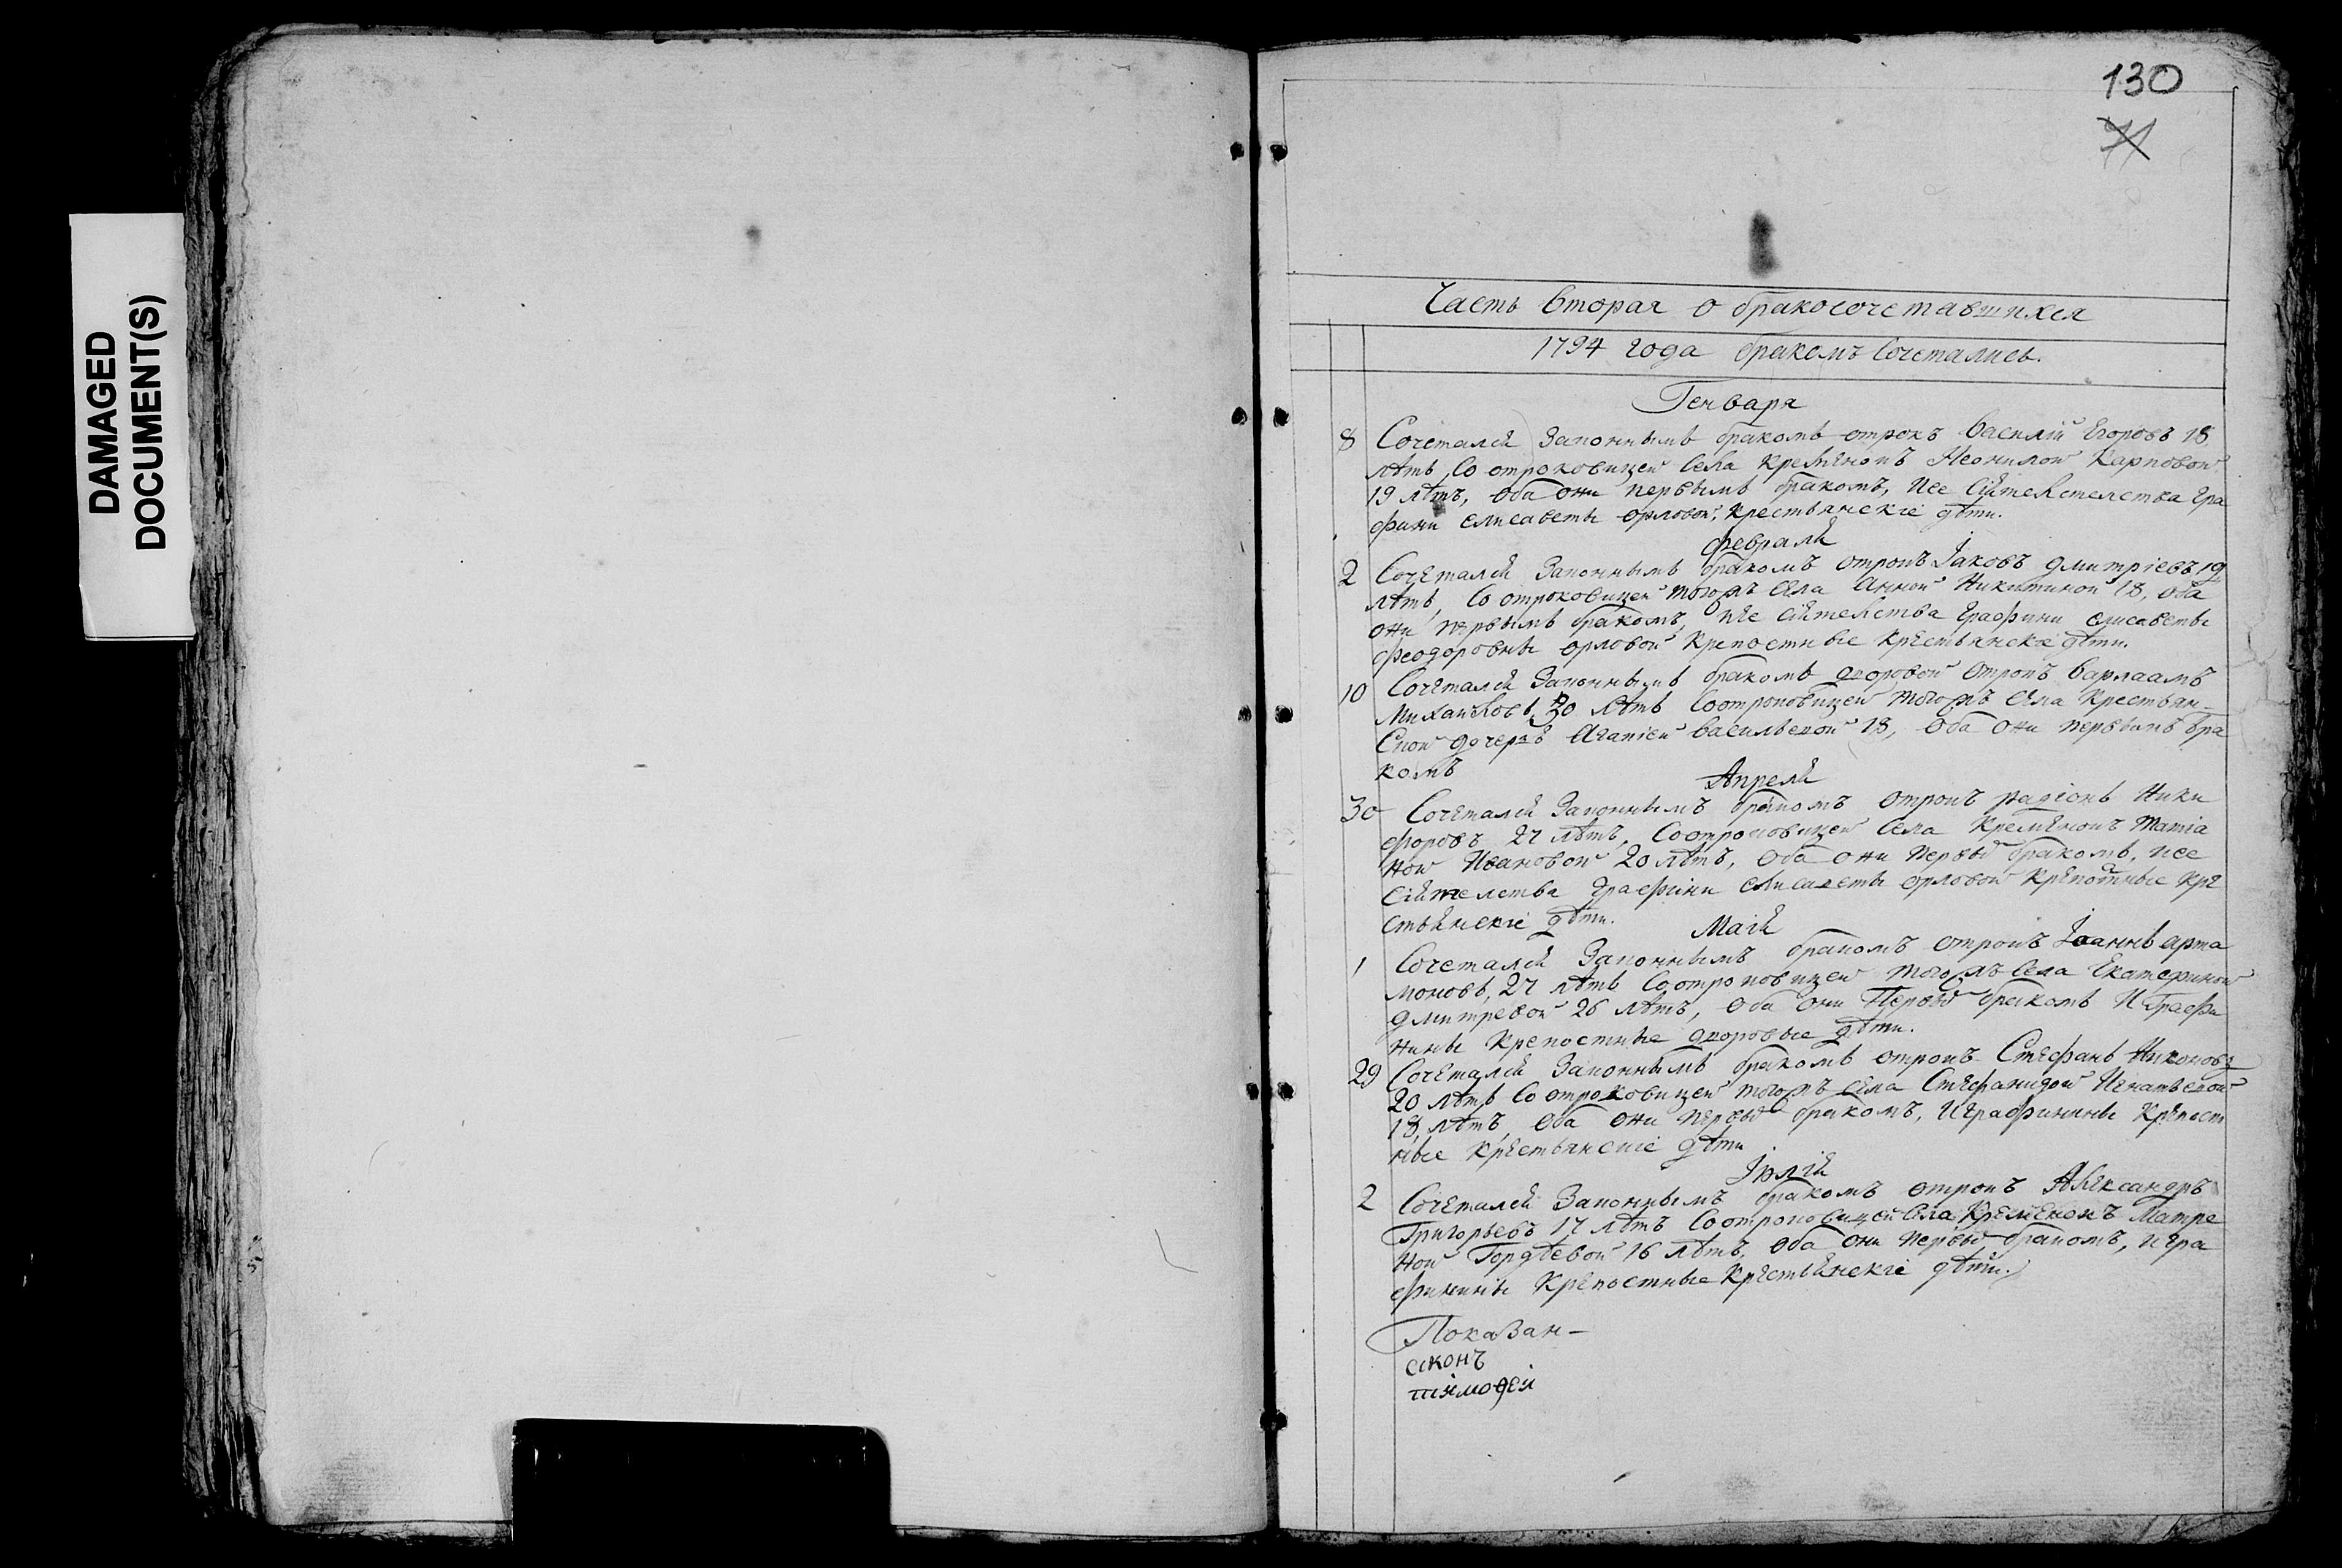 DAMAGED
DOCUMENT(S)
130
71
Часть вторая о бракосочетавшихся
1794 года бракомъ сочетались.
Генваря
8 Сочетался законнымъ бракомъ отрокъ василій Егоровъ 18
лѣтъ, со отроковицей села Кременокъ Неонилой Карповой
19 лѣтъ, оба они первымъ бракомъ, и ее сіятельства гра
фини елисаветы орловой, крестьянскіе дѣти.
февраля
2 Сочетался законнымъ бракомъ отрокъ Іаковъ дмитріевъ 19
лѣтъ, со отроковицей тогожъ села Анной Никитиной 18, оба
они первымъ бракомъ, и ее сіятельства графини елисаветы
феодоровны орловой крепостные крестьянскіе дѣти.
10 Сочетался законнымъ бракомъ дворовой отрокъ варлаамъ
Михайловъ, 30 лѣтъ со отроковицей тогожъ села крестьян-
ской дочерью Агапіей васильевой 18, оба они первымъ бра
комъ
Апреля
30 Сочетался законнымъ бракомъ отрокъ радіонъ Ники
форовъ 27 лѣтъ, со отроковицей села Кременокъ татіа
ной Ивановой 20 лѣтъ, оба они первы бракомъ, и ее
сіятельства графини елисаветы орловой крепостные кре
стьянскіе дѣти.
Маія
1 Сочетался законнымъ бракомъ отрокъ Іоаннъ арта
моновъ, 27 лѣтъ со отроковицей тогожъ села Екатериной
дмитревой 26 лѣтъ, оба они первы бракомъ и графи
нины крепостные дворовые дѣти.
29 Сочетался законнымъ бракомъ отрокъ Стефанъ Никоновъ
20 лѣтъ со отроковицей тогожъ села Стефанидой Игнатьевой
18, лѣтъ, оба они первы бракомъ, и графинины крепост
ные крестьянскіе дѣти
Іюлія
2 Сочетался законнымъ бракомъ отрокъ Александръ
Григорьевъ 17 лѣтъ со отроковицей села Кременокъ Матре
ной Гордѣевой 16 лѣтъ, оба они первы бракомъ, и гра
финины крепостные крестьянскіе дѣти.
Показан-
сконъ
тимофей